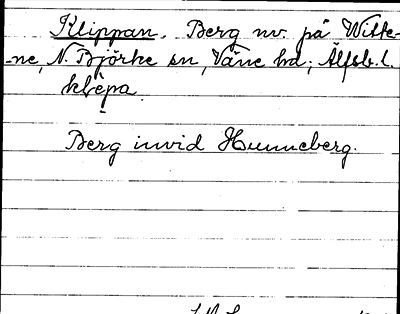 Klippan. Berg nv. på Witte-
ne, N. Björke sn, Väne hd; Älfsb. l.
Berg invid Hunneberg.